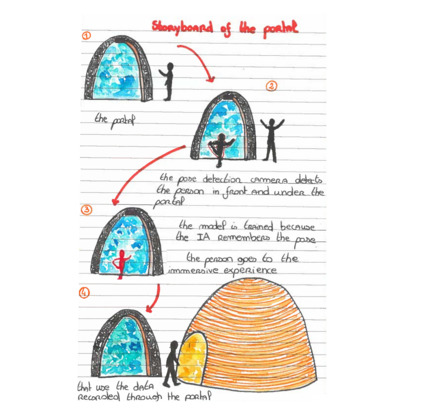 Storyboard of the portal
①
the portal
②
the pose detection camera detects
the person in front and under the
portal
③
the model is trained because
the IA remembers the pose
the person goes to the
immersive experience
④
that use the data
recorded through the portal